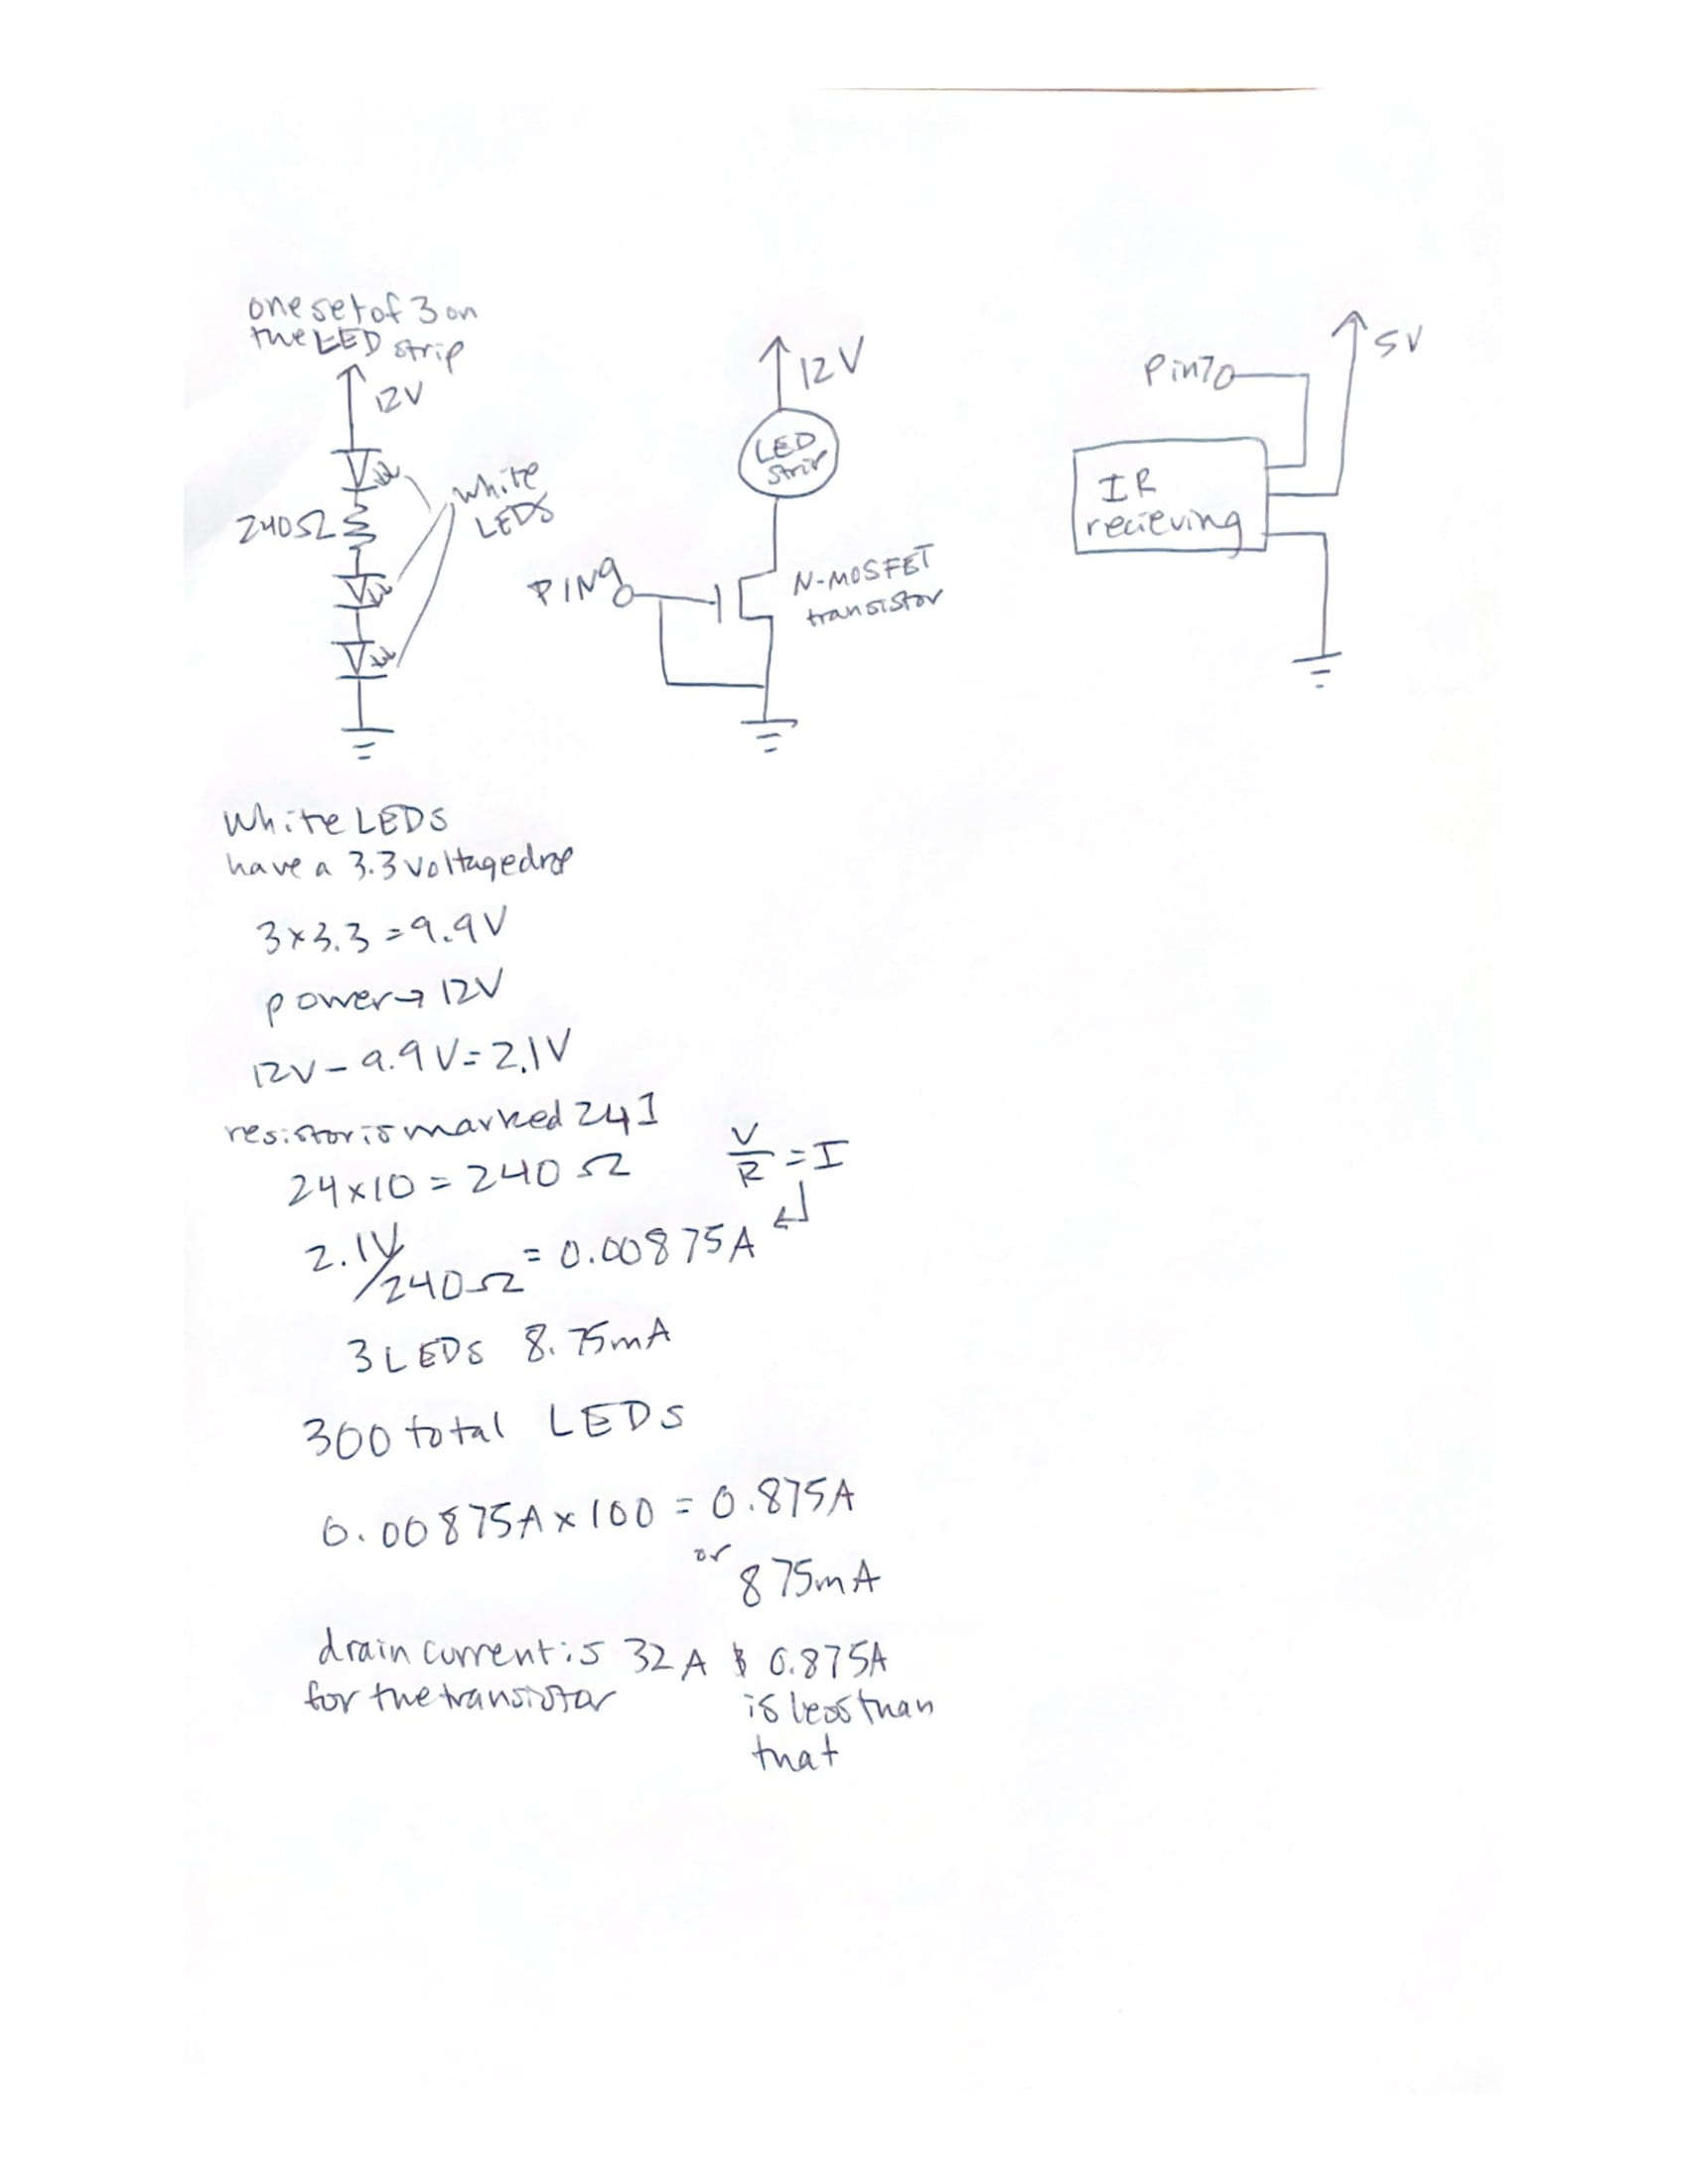 one set of 3 on
the LED strip
12V
240Ω
white
LEDS
12V
LED
strip
PIN9
N-MOSFET
transistor
Pin7
5V
IR
recieving
White LEDS
have a 3.3 voltage drop
3×3.3 = 9.9V
power → 12V
12V - 9.9V = 2.1V
resistor is marked 241
24×10 = 240 Ω
V/R = I
2.1V/240Ω = 0.00875A
3 LEDS 8.75mA
300 total LEDS
0.00875A × 100 = 0.875A
or
875mA
drain current is 32A & 0.875A
for the transistor is less than
that